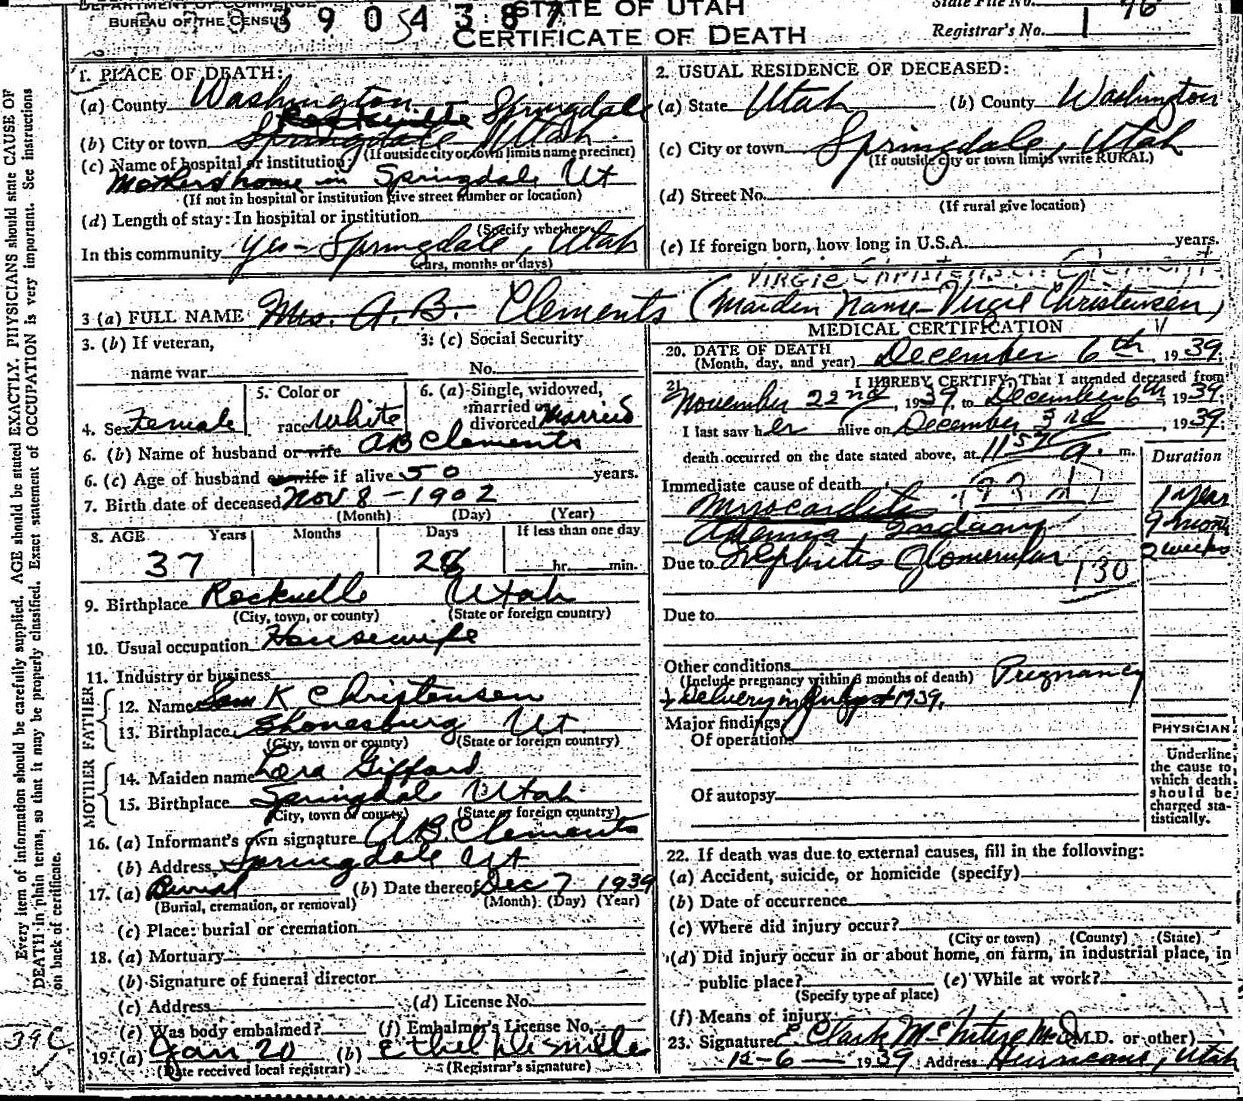 DEPARTMENT OF COMMERCE
BUREAU OF THE CENSUS
STATE OF UTAH
CERTIFICATE OF DEATH
State File No. 96
Registrar's No. 1
1. PLACE OF DEATH:
(a) County Washington
Rockville Springdale
(b) City or town Springdale Utah
(If outside city or town limits name precinct)
(c) Name of hospital or institution:
Mothers home in Springdale Ut
(If not in hospital or institution give street number or location)
(d) Length of stay: In hospital or institution
(Specify whether
In this community yes - Springdale, Utah
years, months or days)
2. USUAL RESIDENCE OF DECEASED:
(a) State Utah (b) County Washington
(c) City or town Springdale, Utah
(If outside city or town limits write RURAL)
(d) Street No.
(If rural give location)
(e) If foreign born, how long in U.S.A. years.
VIRGIE CHRISTENSEN CLEMENTS
3 (a) FULL NAME Mrs. A.B. Clements (Maiden Name - Virgie Christensen)
3. (b) If veteran,
name war
3. (c) Social Security
No.
4. Sex Female
5. Color or
race White
6. (a) Single, widowed,
married or
divorced Married
6. (b) Name of husband or wife AB Clements
6. (c) Age of husband or wife if alive 50 years.
7. Birth date of deceased Nov 8 - 1902
(Month) (Day) (Year)
8. AGE Years Months Days If less than one day
37 28 hr. min.
9. Birthplace Rockville Utah
(City, town, or county) (State or foreign country)
10. Usual occupation Housewife
11. Industry or business
FATHER
12. Name Sam K Christensen
13. Birthplace Shonesburg Ut
(City, town or county) (State or foreign country)
MOTHER
14. Maiden name Lera Gifford
15. Birthplace Springdale Utah
(City, town or county) (State or foreign country)
16. (a) Informant's own signature A.B. Clements
(b) Address Springdale Ut
17. (a) Burial (b) Date thereof Dec 7 1939
(Burial, cremation, or removal) (Month) (Day) (Year)
(c) Place: burial or cremation
18. (a) Mortuary
(b) Signature of funeral director
(c) Address (d) License No.
(e) Was body embalmed? (f) Embalmer's License No.
19. (a) Jan 20 (b) Ethel
(Date received local registrar) (Registrar's signature)
MEDICAL CERTIFICATION
20. DATE OF DEATH
(Month, day, and year) December 6th, 1939
21. I HEREBY CERTIFY, That I attended deceased from
November 22nd, 1939, to December 6th, 1939
I last saw her alive on December 3rd, 1939.
death occurred on the date stated above, at a. m.
Duration
Immediate cause of death
Myocarditis 1 year
Anemia 9 months
Due to Nephritis Glomerular 2 weeks
130
Due to
Other conditions Pregnancy
(Include pregnancy within 3 months of death)
+ Delivery in August 1939.
Major findings:
Of operations
Of autopsy
PHYSICIAN
Underline
the cause to
which death
should be
charged sta-
tistically.
22. If death was due to external causes, fill in the following:
(a) Accident, suicide, or homicide (specify)
(b) Date of occurrence
(c) Where did injury occur?
(City or town) (County) (State)
(d) Did injury occur in or about home, on farm, in industrial place, in
public place? (e) While at work?
(Specify type of place)
(f) Means of injury
23. Signature E. Clark McIntire M.D. (M.D. or other)
12-6- 1939 Address Hurricane, Utah
Every item of information should be carefully supplied. AGE should be stated EXACTLY. PHYSICIANS should state CAUSE OF
DEATH in plain terms, so that it may be properly classified. Exact statement of OCCUPATION is very important. See instructions
on back of certificate.
39C